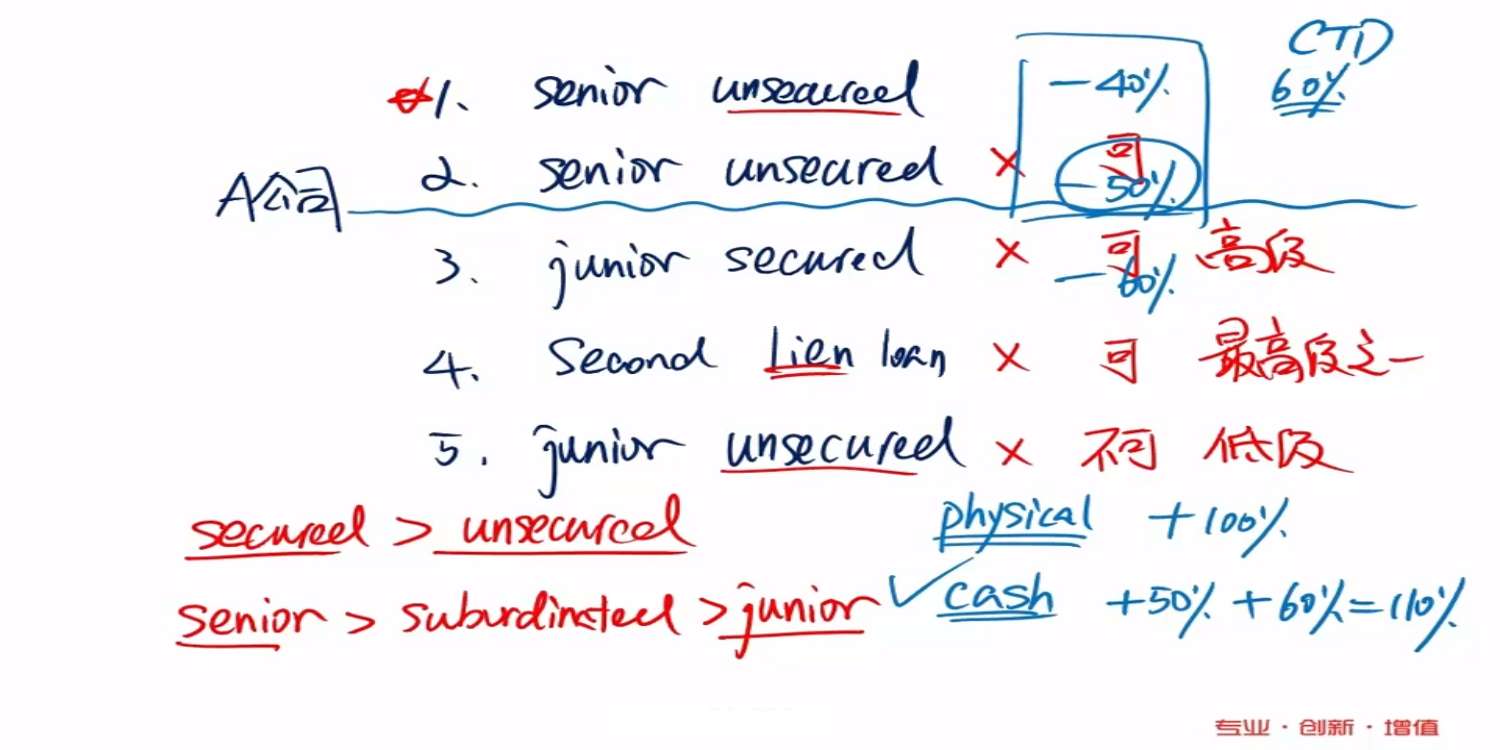 CTD
1. senior unsecured -40% 60%
2. senior unsecured × 可 -50%
A公司
3. junior secured × 可 高级
-60%
4. Second Lien loan × 可 最高级之一
5. junior unsecured × 不可 低级
secured > unsecured
physical +100%
senior > subordinated > junior
✓ cash +50% + 60% = 110%
专业 · 创新 · 增值